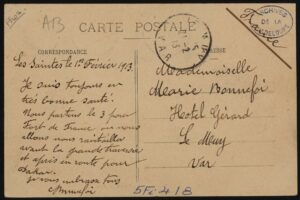 A13
CARTE POSTALE
(France)
ARCHIVES
DE LA
CORRESPONDANCE
ADRESSE
Les Saintes le 1er Février 1913.
Je suis toujours en
très bonne santé.
Nous partons le 3 pour
Fort de France où nous
allons nous ravitailler
avant la grande traversée
et après en route pour
Dakar.
je vous embrasse tous
Bonnefoi
Mademoiselle
Marie Bonnefoi
Hostel Gérard
Le Muy
Var
5Fi 418